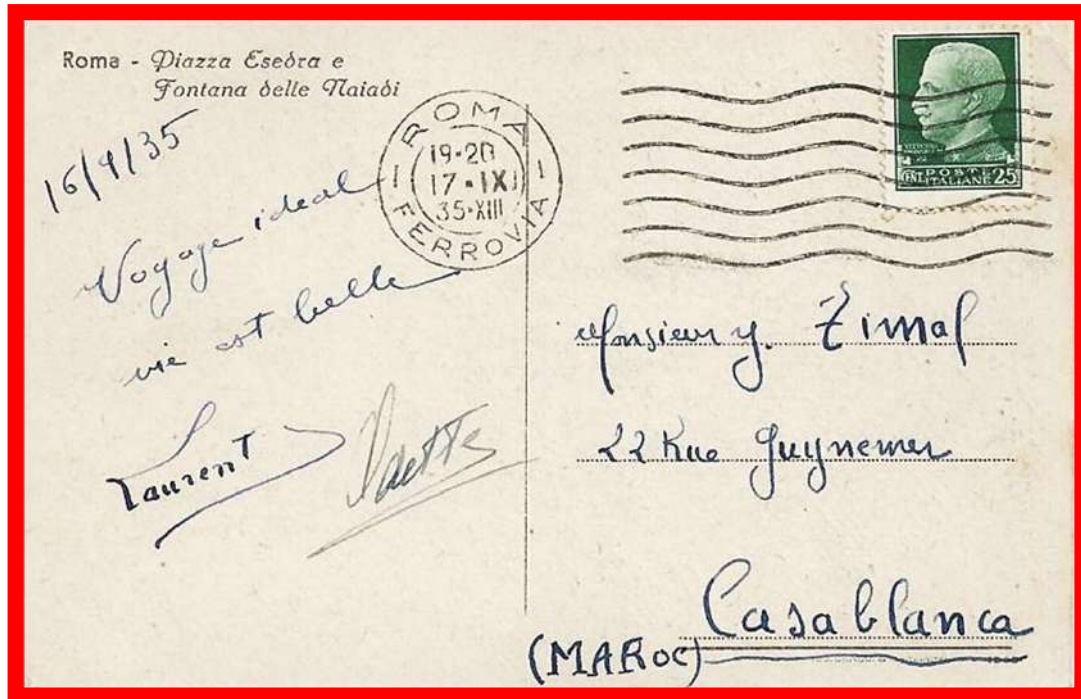 Roma - Piazza Esedra e
Fontana delle Naiadi
16/9/35
Voyage ideal
vie est belle
Laurent
ROMA
19·20
17·IX
35·XIII
FERROVIA
CENT POSTE
ITALIANE 25
Monsieur Y. Zimal
22 Rue Guynemer
Casablanca
(MARoc)